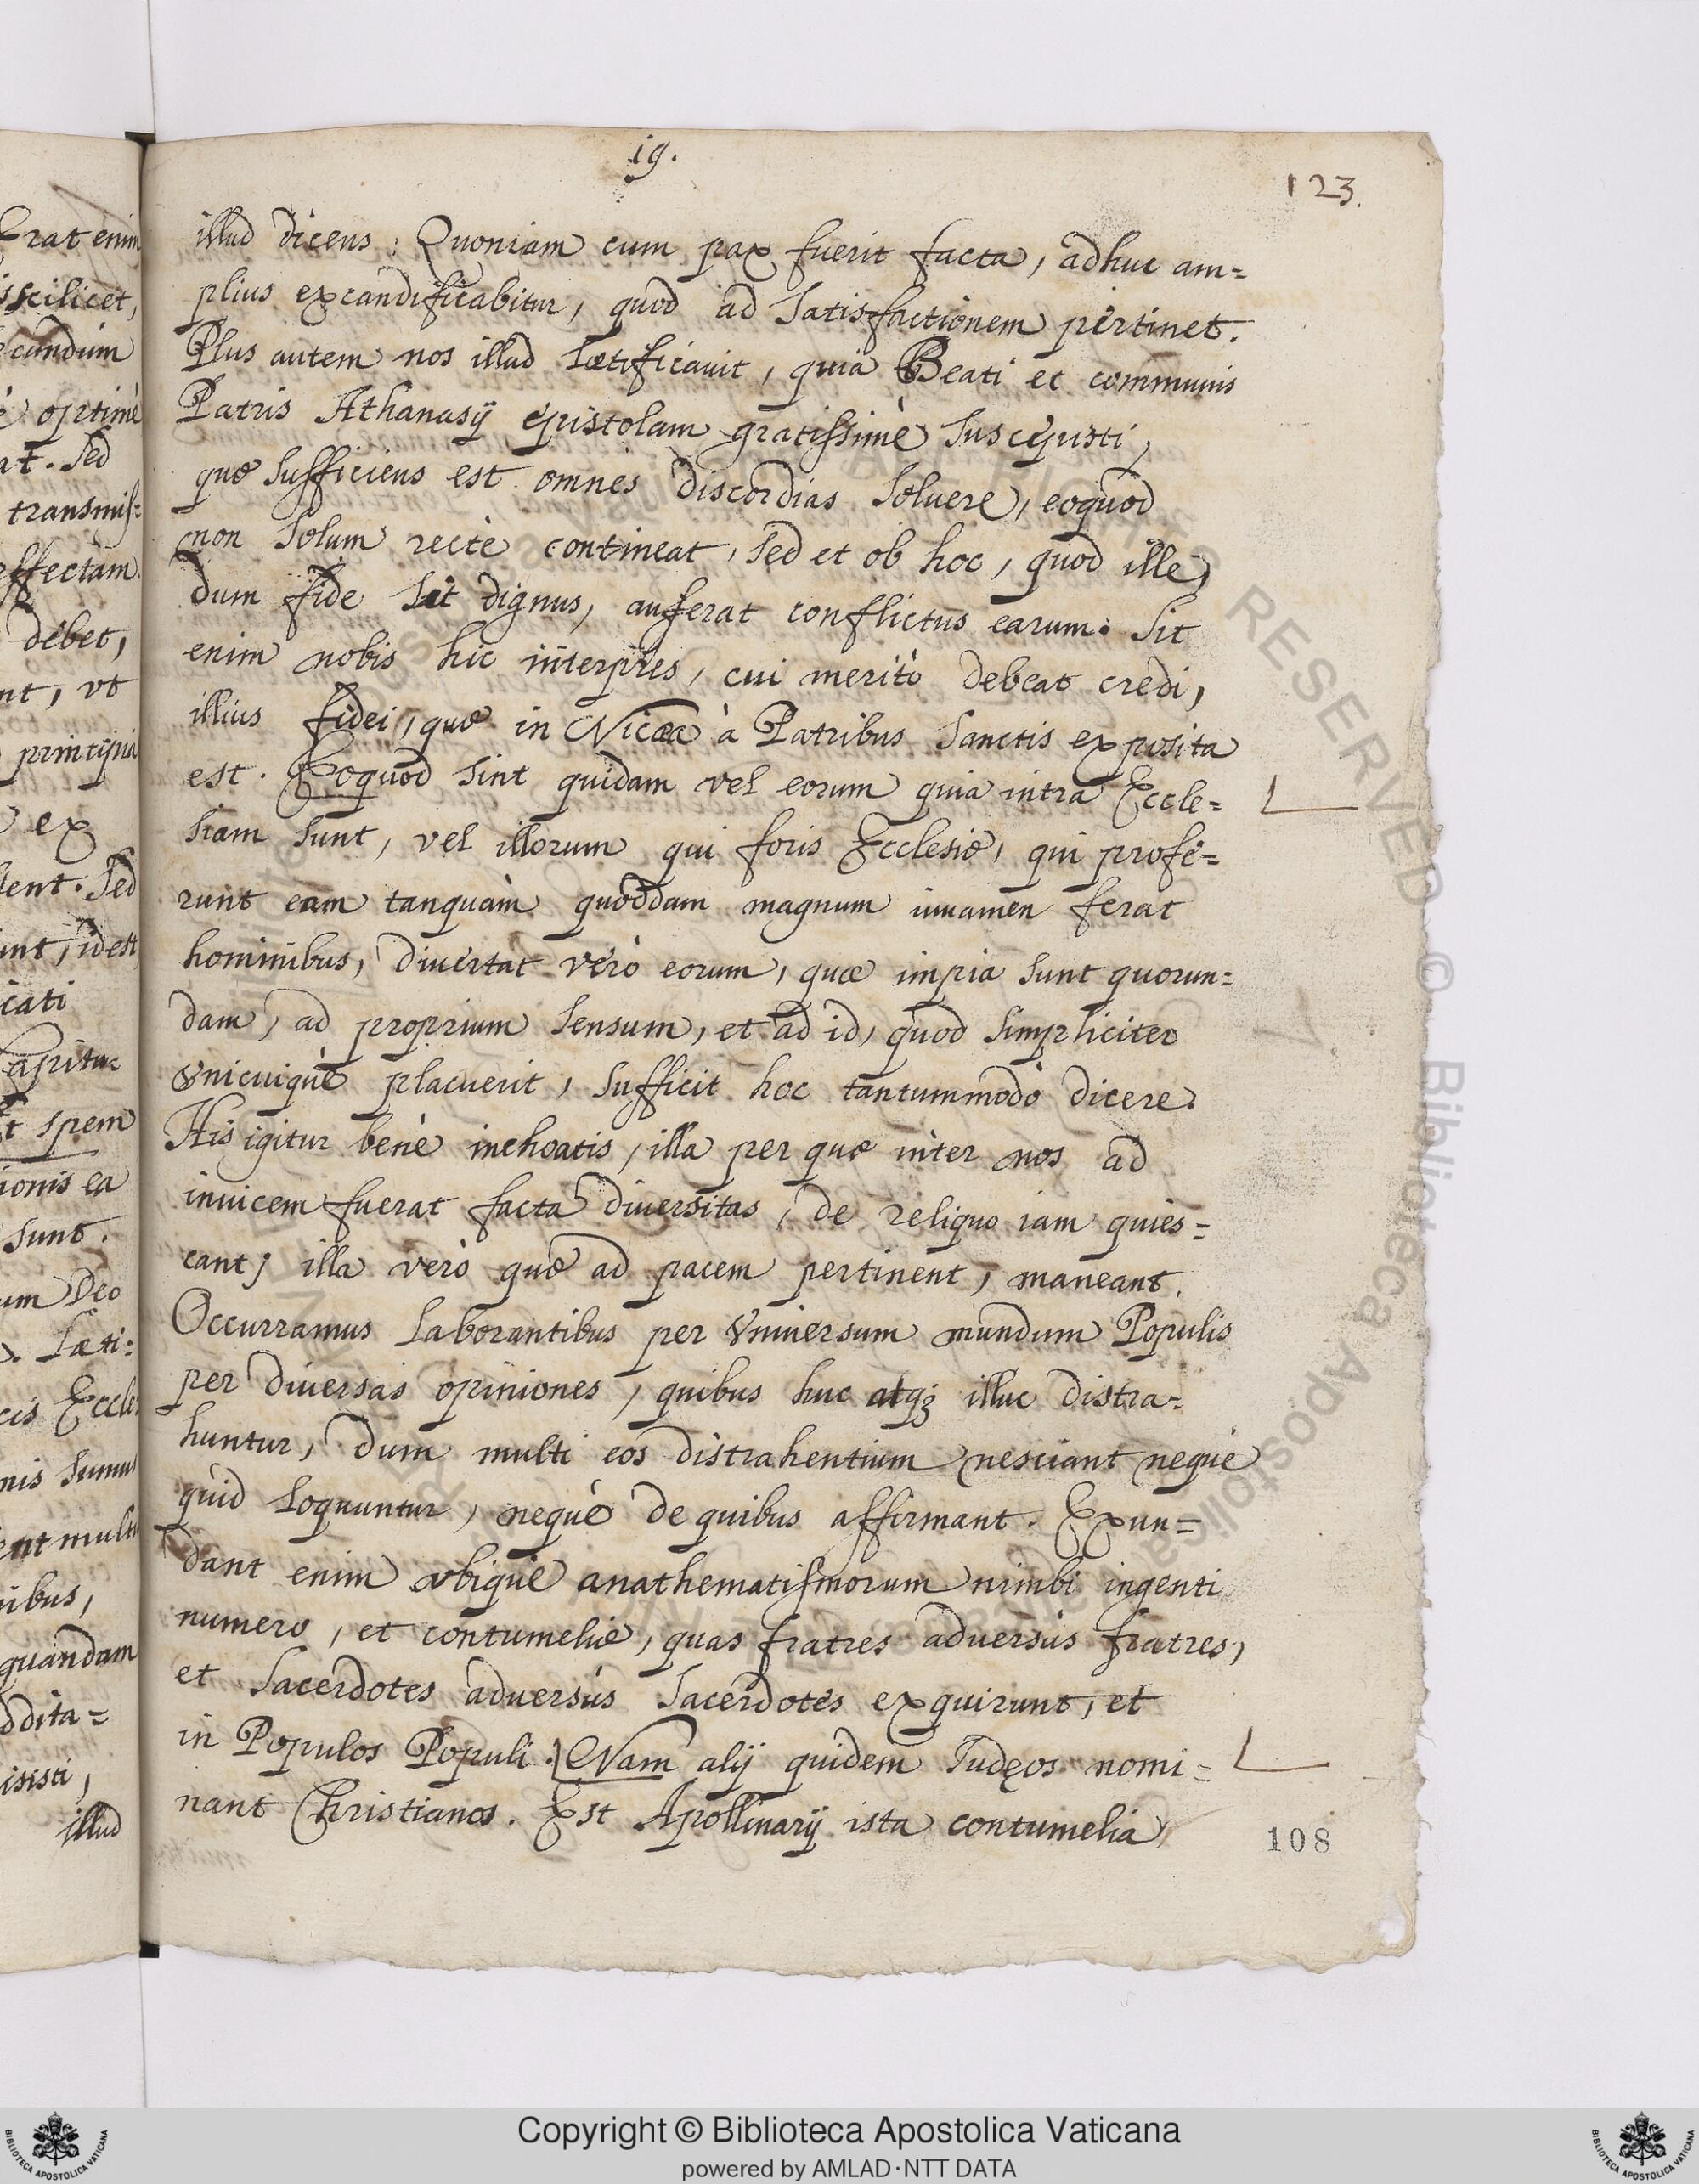 19.
123.
illud dicens: Quoniam cum pax fuerit facta, adhuc am=
plius excandificabitur, quod ad satisfactionem pertinet.
Plus autem nos illud lætificauit, quia Beati et communis
Patris Athanasij epistolam gratissimè suscepisti,
quę sufficiens est omnes discordias soluere, eoquod
non solum rectè contineat, sed et ob hoc, quod ille,
dum fide sit dignus, auferat conflictus earum. Sit
enim nobis hic interpres, cui meritò debeat credi,
illius fidei, quę in Nicæa à Patribus Sanctis exposita
est. Eoquod sint quidam vel eorum quia intra Eccle=
siam sunt, vel illorum qui foris Ecclesię, qui profe=
runt eam tanquàm quoddam magnum iuuamen ferat
hominibus, diuertat verò eorum, quæ impia sunt quorun=
dam, ad proprium sensum, et ad id, quod simpliciter
vnicuiquè placuerit, sufficit hoc tantummodò dicere.
His igitur benè inchoatis, illa per quę inter nos ad
inuicem fuerat facta diuersitas, de reliquo iam quies=
cant; illa verò quę ad pacem pertinent, maneant.
Occurramus laborantibus per vniuersum mundum Populis
per diuersas opiniones, quibus huc atq; illuc distra=
huntur, dum multi eos distrahentium nesciant nequè
quid loquuntur, nequè de quibus affirmant. Exun=
dant enim vbiquè anathematismorum nimbi ingenti
numero, et contumelię, quas fratres aduersùs fratres,
et Sacerdotes aduersùs Sacerdotes exquirunt, et
in Populos Populi. Nam alij quidem Iudęos nomi=
nant Christianos. Est Apollinarij ista contumelia
108
Erat enim
scilicet,
optimè
at. Sed
transmis=
debet,
nt, vt
principia
ex
lent. Sed
unt, idest
cati
t spem
ionis ea
sunt.
um Deo
Læti=
cis Eccle
nis sumu
ent mult
ibus,
quandam
ddita=
isisti,
illud
RESERVED © Biblioteca Apostolica
Copyright © Biblioteca Apostolica Vaticana
powered by AMLAD·NTT DATA
BIBLIOTECA APOSTOLICA VATICANA
BIBLIOTECA APOSTOLICA VATICANA